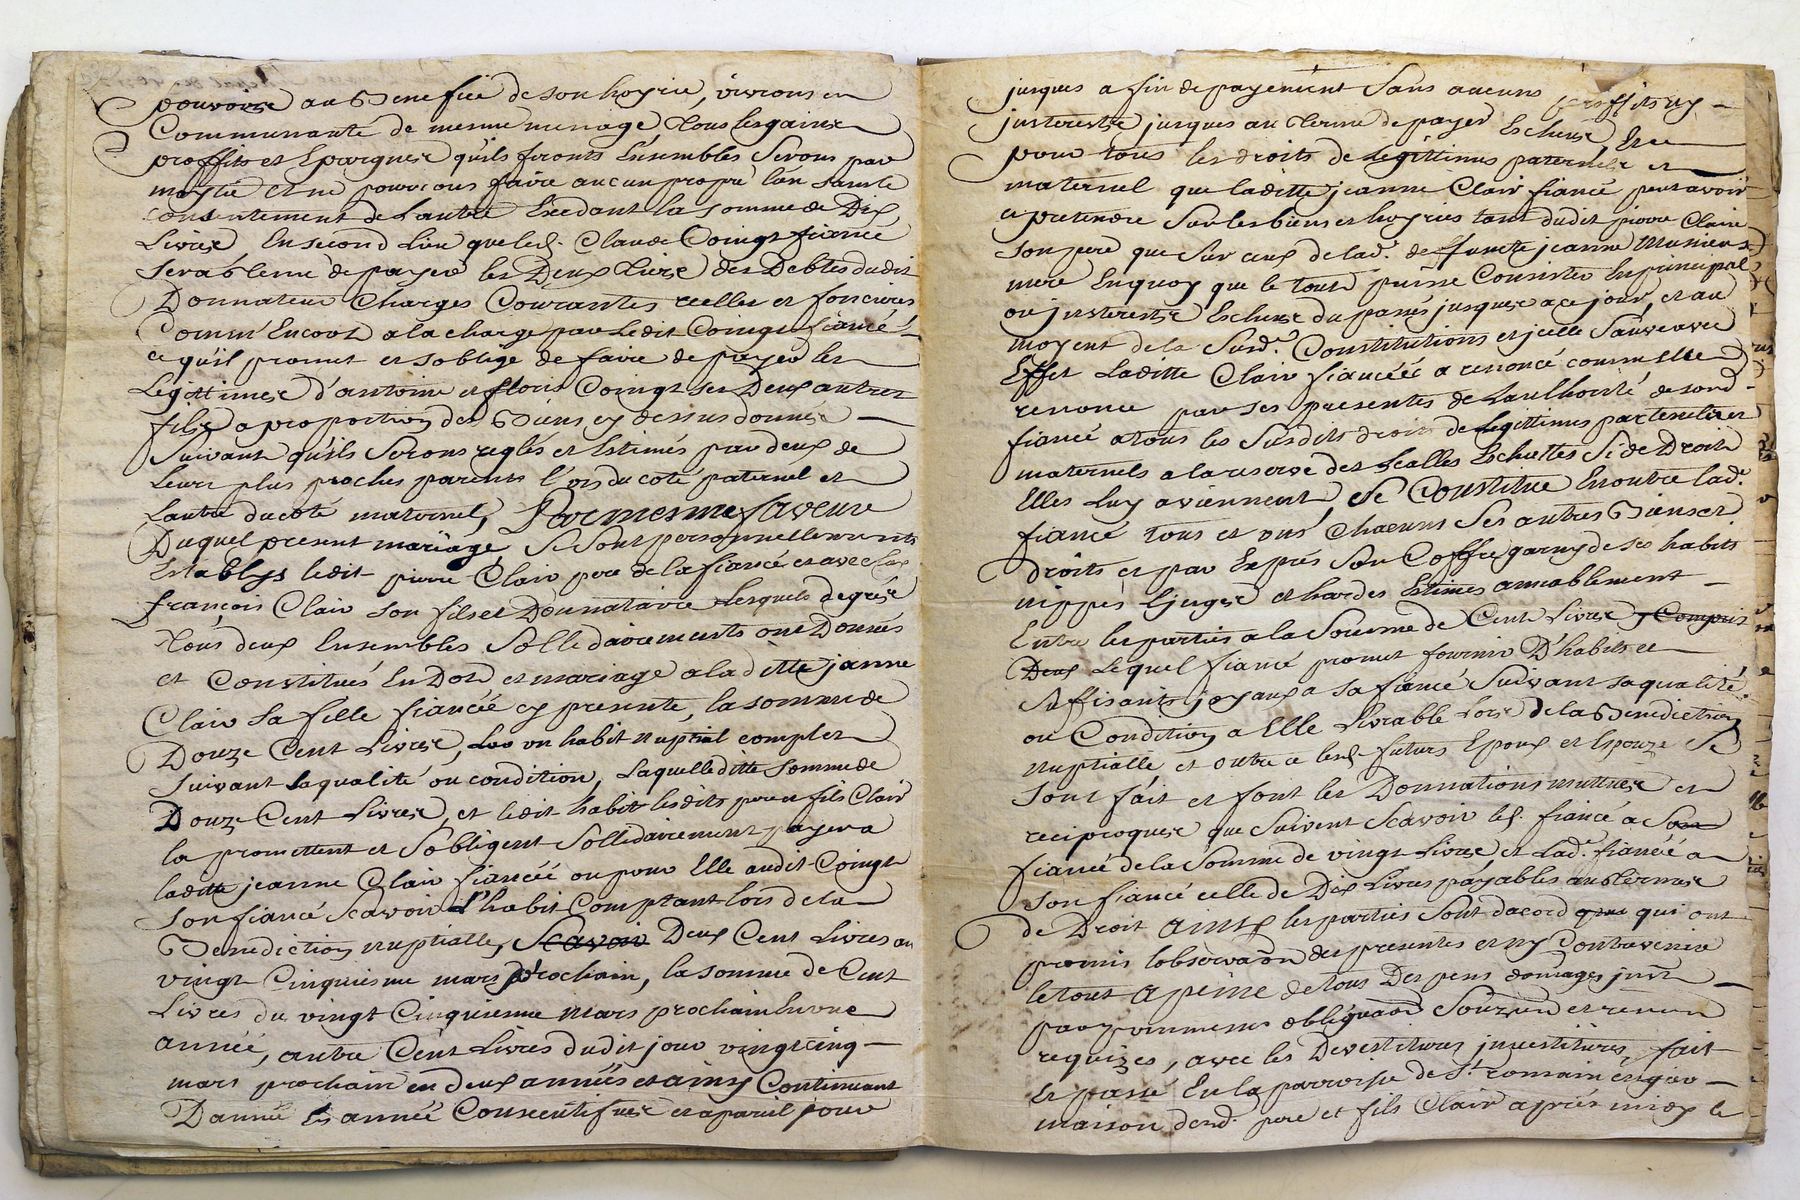 pouvoire au Benefice de son hoyrie, vivrons en
Communauté de mesme menage, tous les gaines
proffits et Epargnes qu'ils feronts Ensembles Serons par
moytié et ne pourrons faire aucun propre l'un sans le
consentement de l'autre Excedant la somme de Dix
Livres, En second Lieu que led. Claude Coingt fiancé
sera tenu de payer les Deux tiers des Debtes dudit
Donnateur Charges Courantes reelles et foncieres
Comm' Encore a la charge par Ledit Coingt fiancé
ce qu'il promet et s'oblige de faire de payer les
Legittimes d'antoine et floris Coingt ses Deux autres
fils a proportion des Biens cy dessus donnés
Suivant qu'ils Serons reglés et Estimés par deux de
Leurs plus proches parents l'un du coté paternel et
Lautre du coté maternel, Par mesme faveure
Duquel present mariage, Se Sont personnellements
Establys ledit pierre Clair pere de la fiancé et avec luy
françois Clair son fils et Donnataire Lesquels de gré
tous deux Ensembles Sollidairements ont Donnés
et Constitués En Dot et mariage a laditte janne
Clair Sa fille fiancéé cy presente, la somme de
Douze Cent Livres, un habit nuptial complet
suivant sa qualité ou condition, Laquelle ditte somme de
Douze Cent Livres, et ledit habit lesdits pere et fils Clair
la promettent et S'obligent Sollidairement payer a
laditte jeanne Clair fiancéé ou pour Elle audit Coingt
son fiancé Scavoir l'habit Comptant lors de la
Benediction nuptialle, Scavoir Deux Cent Livres au
vingt Cinquiesme mars prochain, la somme de Cent
Livres du vingt Cinquiesme Mars prochain En une
année, autre Cent Livres dudit jour vingt cinq
mars prochain en deux années et ainsy Continuant
D'année En année Consecutifves et a pareil jour
jusques a fin de payement Sans aucuns proffits ny
justerestre jusques au terme de payer Escheus, Et ce
pour tous les droits de Legittimes paternels et
maternel que laditte jeanne Clair fiancé peut avoir
et pretendre Sur les biens et hoyries tant dudit pierre Claire
son pere que Sur ceux de lad. deffuncte jeanne
mere En quoy que le tout puisse Consister En principal
ou justerestre Escheus du passé jusques a ce jour, et au
moyent de la Susd. Constitutions et jcelle Sauve avec
Effet Laditte Clair fiancéé a renoncé comm'Elle
renonce par ses presentes de L'authorité de sond.
fiancé a tous les Susdits droits de Legittimes paternelles et
maternels a la reserve des Lealles Escheuttes Si de Droit
Elles Luy aviennent, Se Constitue En outre lad.
fiancé tous et uns Chacuns Ses autres Biens et
droits et par Exprés Son Coffre garny de ses habits
nippes Linges et hardes Estimes amiablement
Entre les parties a la Somme de Cent Livres y Compris
Deux Lequel fiancé promet fournir D'habits et
suffisants joyaux a sa fiancé Suivant sa qualité
ou Condition a Elle Livrable Lors de la Benediction
Nuptialle et outre a lesd. futurs Epoux et Epouze Se
sont fáit et font les Donnations mutues et
reciproques que Suivent Scavoir led. fiancé a Son
fiancé de la Somme de vingt Livres et Lad. fiancéé a
son fiancé celle de Dix Livres payables aux termes
de Droit ainsy les parties Sont d'acord que qui ont
promis l'observaon des presentes et n'y Contrevenir
le tout a peine de tous Despens domages just
par promesses obligaon Soumon et renon
requizes, avec les Devestitures jnvestitures, fait
Et passé En la parroisse de St. romain en gier
maison desd. pere et fils Clair aprés midy le